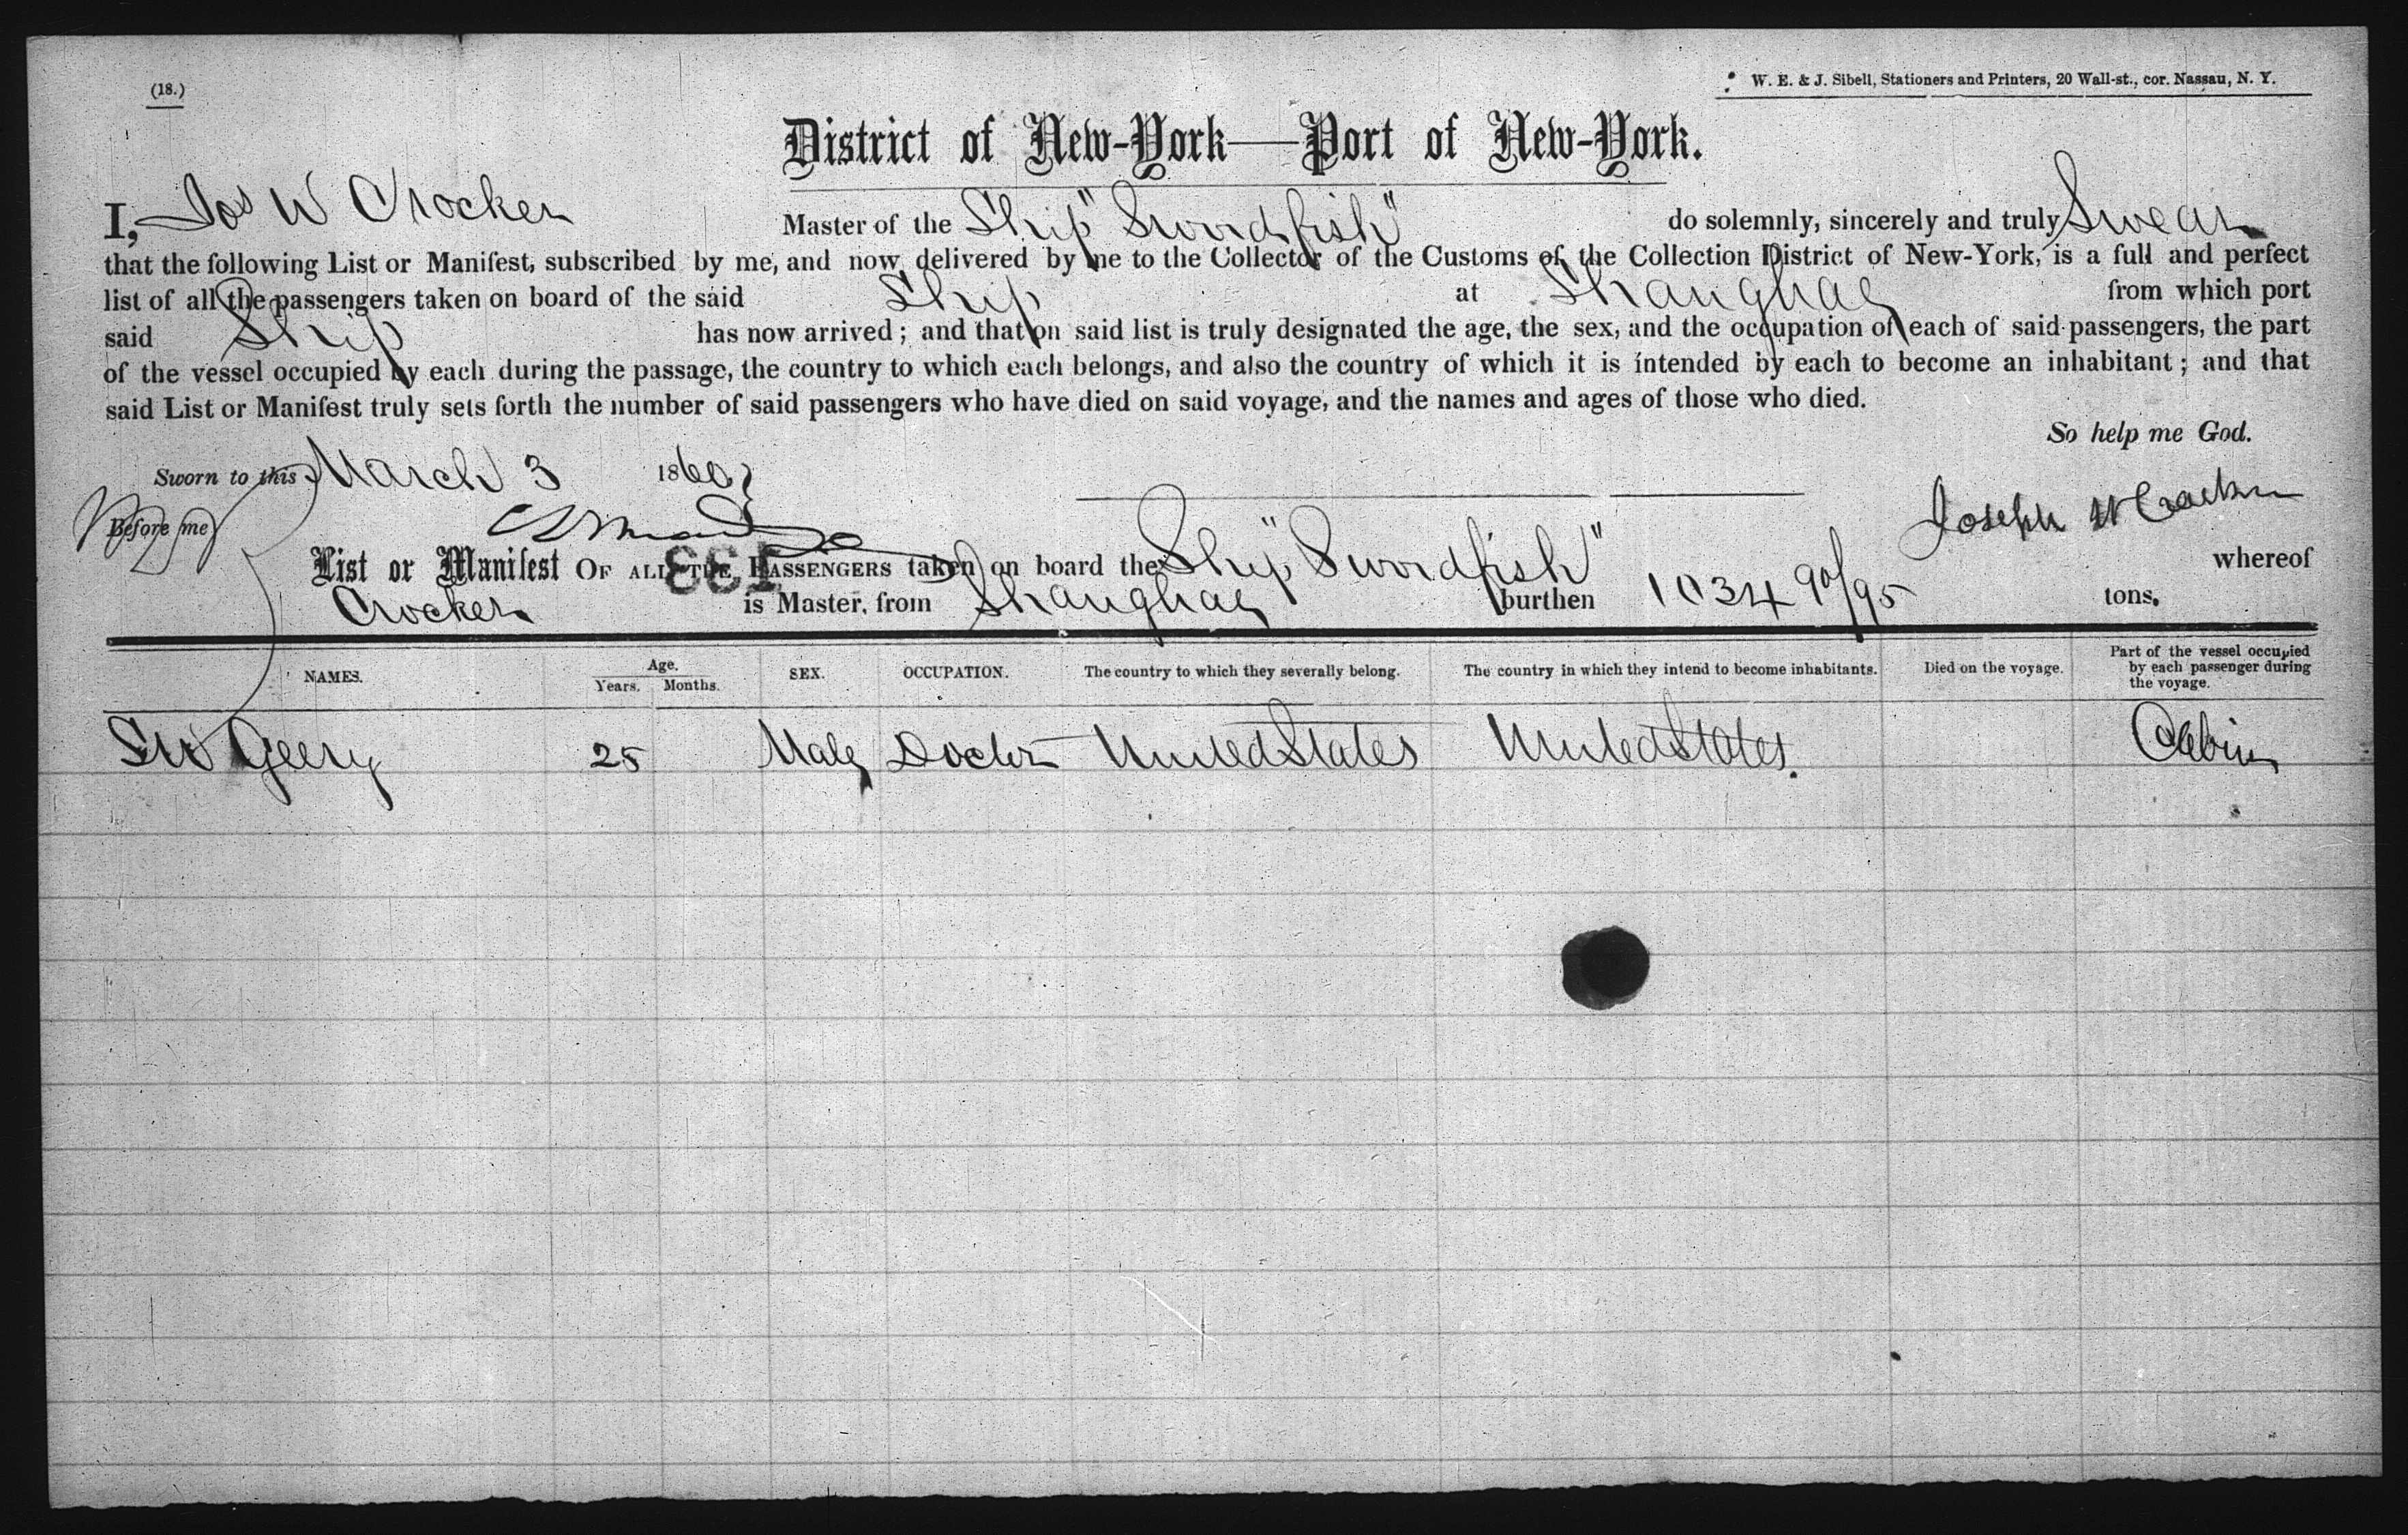 (18.)
W. E. & J. Sibell, Stationers and Printers, 20 Wall-st., cor. Nassau, N. Y.
District of New-York—Port of New-York.
I, Jos W Crocker Master of the Ship "Swordfish" do solemnly, sincerely and truly Swear
that the following List or Manifest, subscribed by me, and now delivered by me to the Collector of the Customs of the Collection District of New-York, is a full and perfect
list of all the passengers taken on board of the said Ship at Shanghae from which port
said Ship has now arrived; and that on said list is truly designated the age, the sex, and the occupation of each of said passengers, the part
of the vessel occupied by each during the passage, the country to which each belongs, and also the country of which it is intended by each to become an inhabitant; and that
said List or Manifest truly sets forth the number of said passengers who have died on said voyage, and the names and ages of those who died.
So help me God.
Sworn to this March 3 1860
Joseph W Crocker
Before me
List or Manifest OF ALL THE PASSENGERS taken on board the Ship "Swordfish" whereof
Crocker is Master, from Shanghae burthen 1034 90/95 tons.
133
NAMES. Age. Years. Months. SEX. OCCUPATION. The country to which they severally belong. The country in which they intend to become inhabitants. Died on the voyage. Part of the vessel occupied by each passenger during the voyage.
Geery 25 Male Doctor United States United States. Cabin